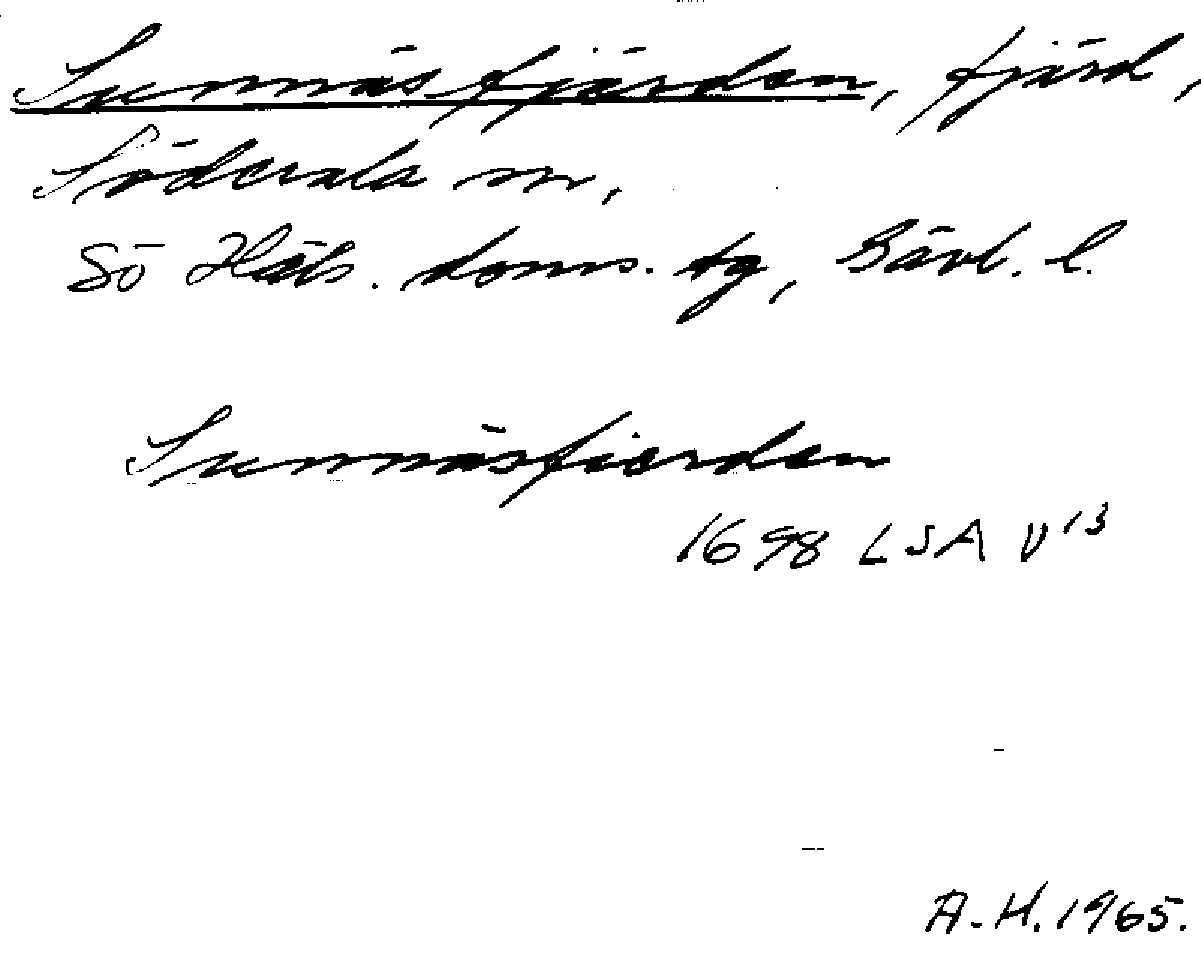 Sunnäsfjärden, fjärd,
Söderala sn,
Sö Häls. doms. tg, Gävl. l.
Sunnäsfierden
1698 LSA V 13
A.H. 1965.